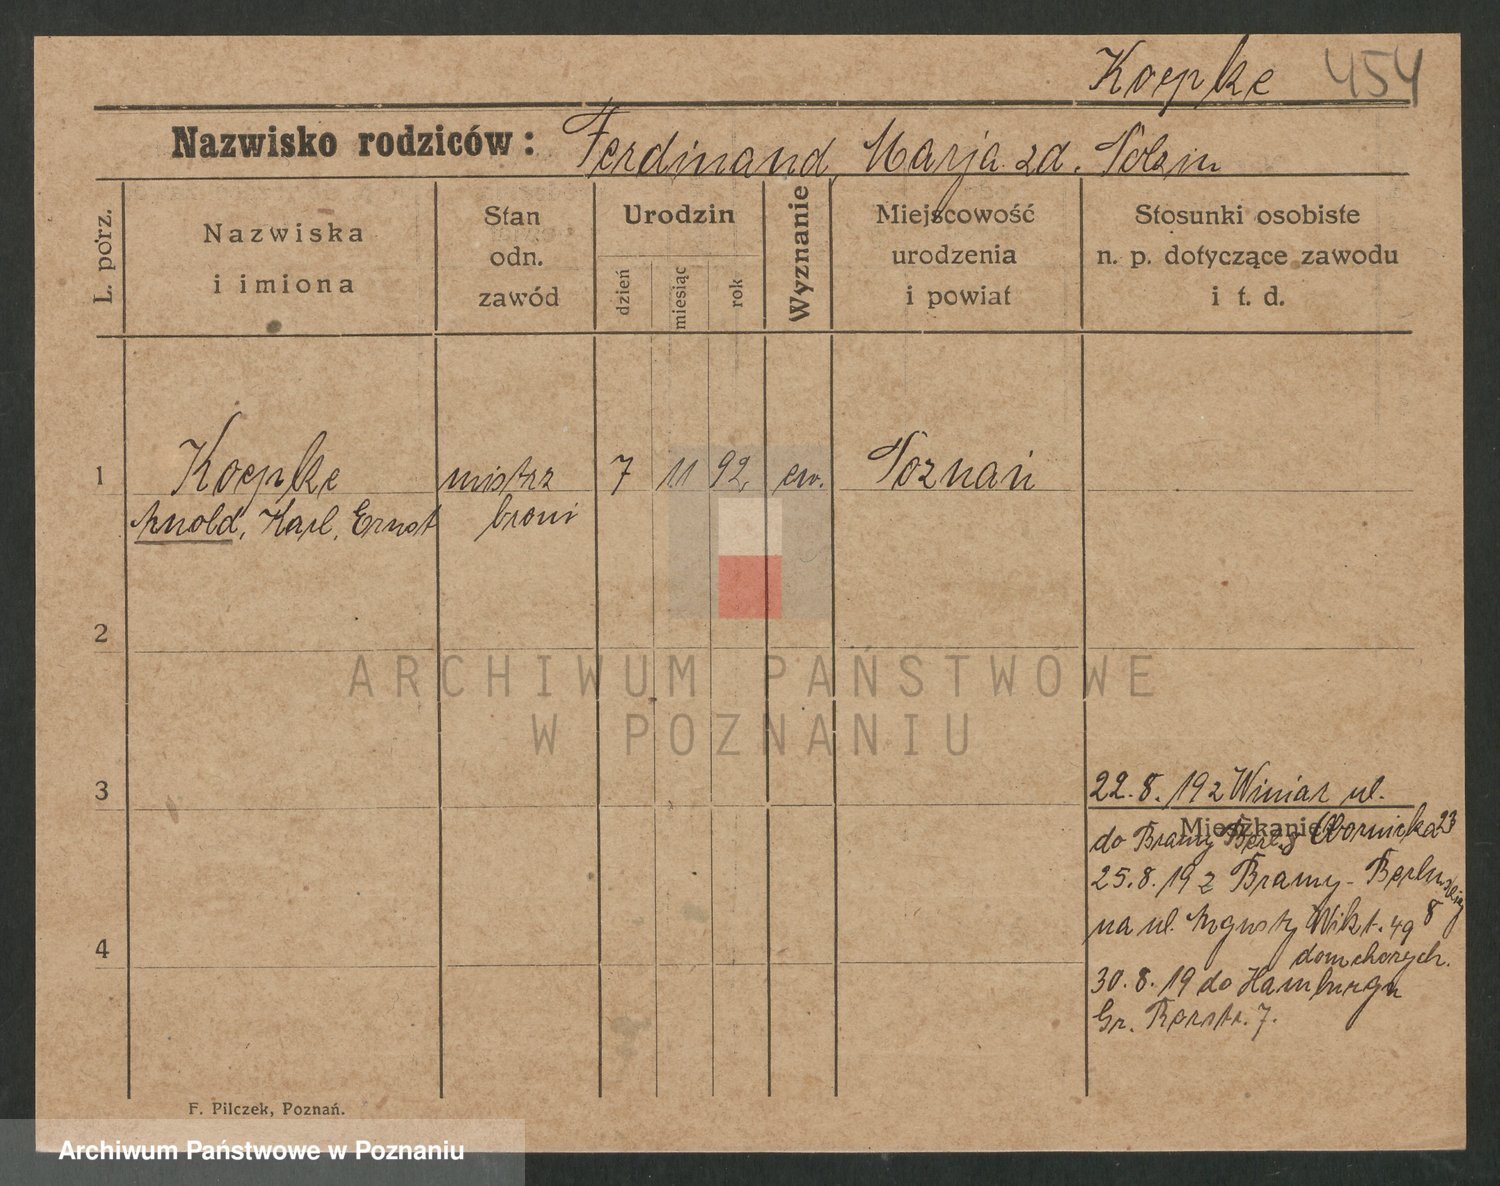 Koepke 454
Nazwisko rodziców: Ferdinand, Marja zd. Polzin
L. porz.
Nazwiska
i imiona
Stan
odn.
zawód
Urodzin
dzień
miesiąc
rok
Wyznanie
Miejscowość
urodzenia
i powiat
Stosunki osobiste
n. p. dotyczące zawodu
i t. d.
1 Koepke mistrz 7 11 92, ew. Poznań
Arnold, Karl, Ernst broni
2
ARCHIWUM PAŃSTWOWE
W POZNANIU
3
22.8.19 z Winiar ul.
Mieszkanie
do Bramy Berl. 8 Obornicka 23
25.8.19 z Bramy-Berlińskiej 8
na ul. Augusty Wikt. 49
4
dom chorych.
30.8.19 do Hamburga
Gr. 7.
F. Pilczek, Poznań.
Archiwum Państwowe w Poznaniu